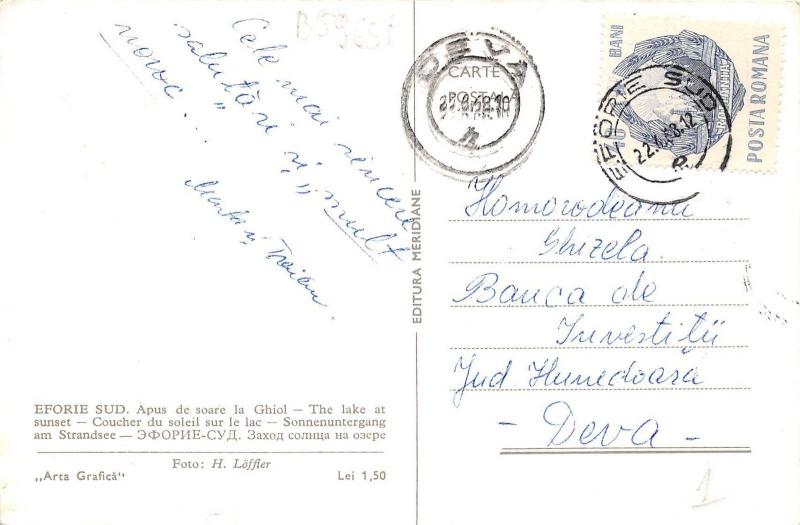 B59651
Cele mai sincere
salutări și „mult
noroc".
Traian
EFORIE SUD. Apus de soare la Ghiol — The lake at
sunset — Coucher du soleil sur le lac — Sonnenuntergang
am Strandsee — ЭФОРИЕ-СУД. Заход солнца на озере
Foto: H. Löffler
„Arta Grafică“ Lei 1,50
EDITURA MERIDIANE
CARTE
POȘTALĂ
DEVA
EFORIE SUD
40 BANI
POSTA ROMANA
Homorodeanu
Ghizela
Banca de
Investiții
Jud Hunedoara
- Deva -
1